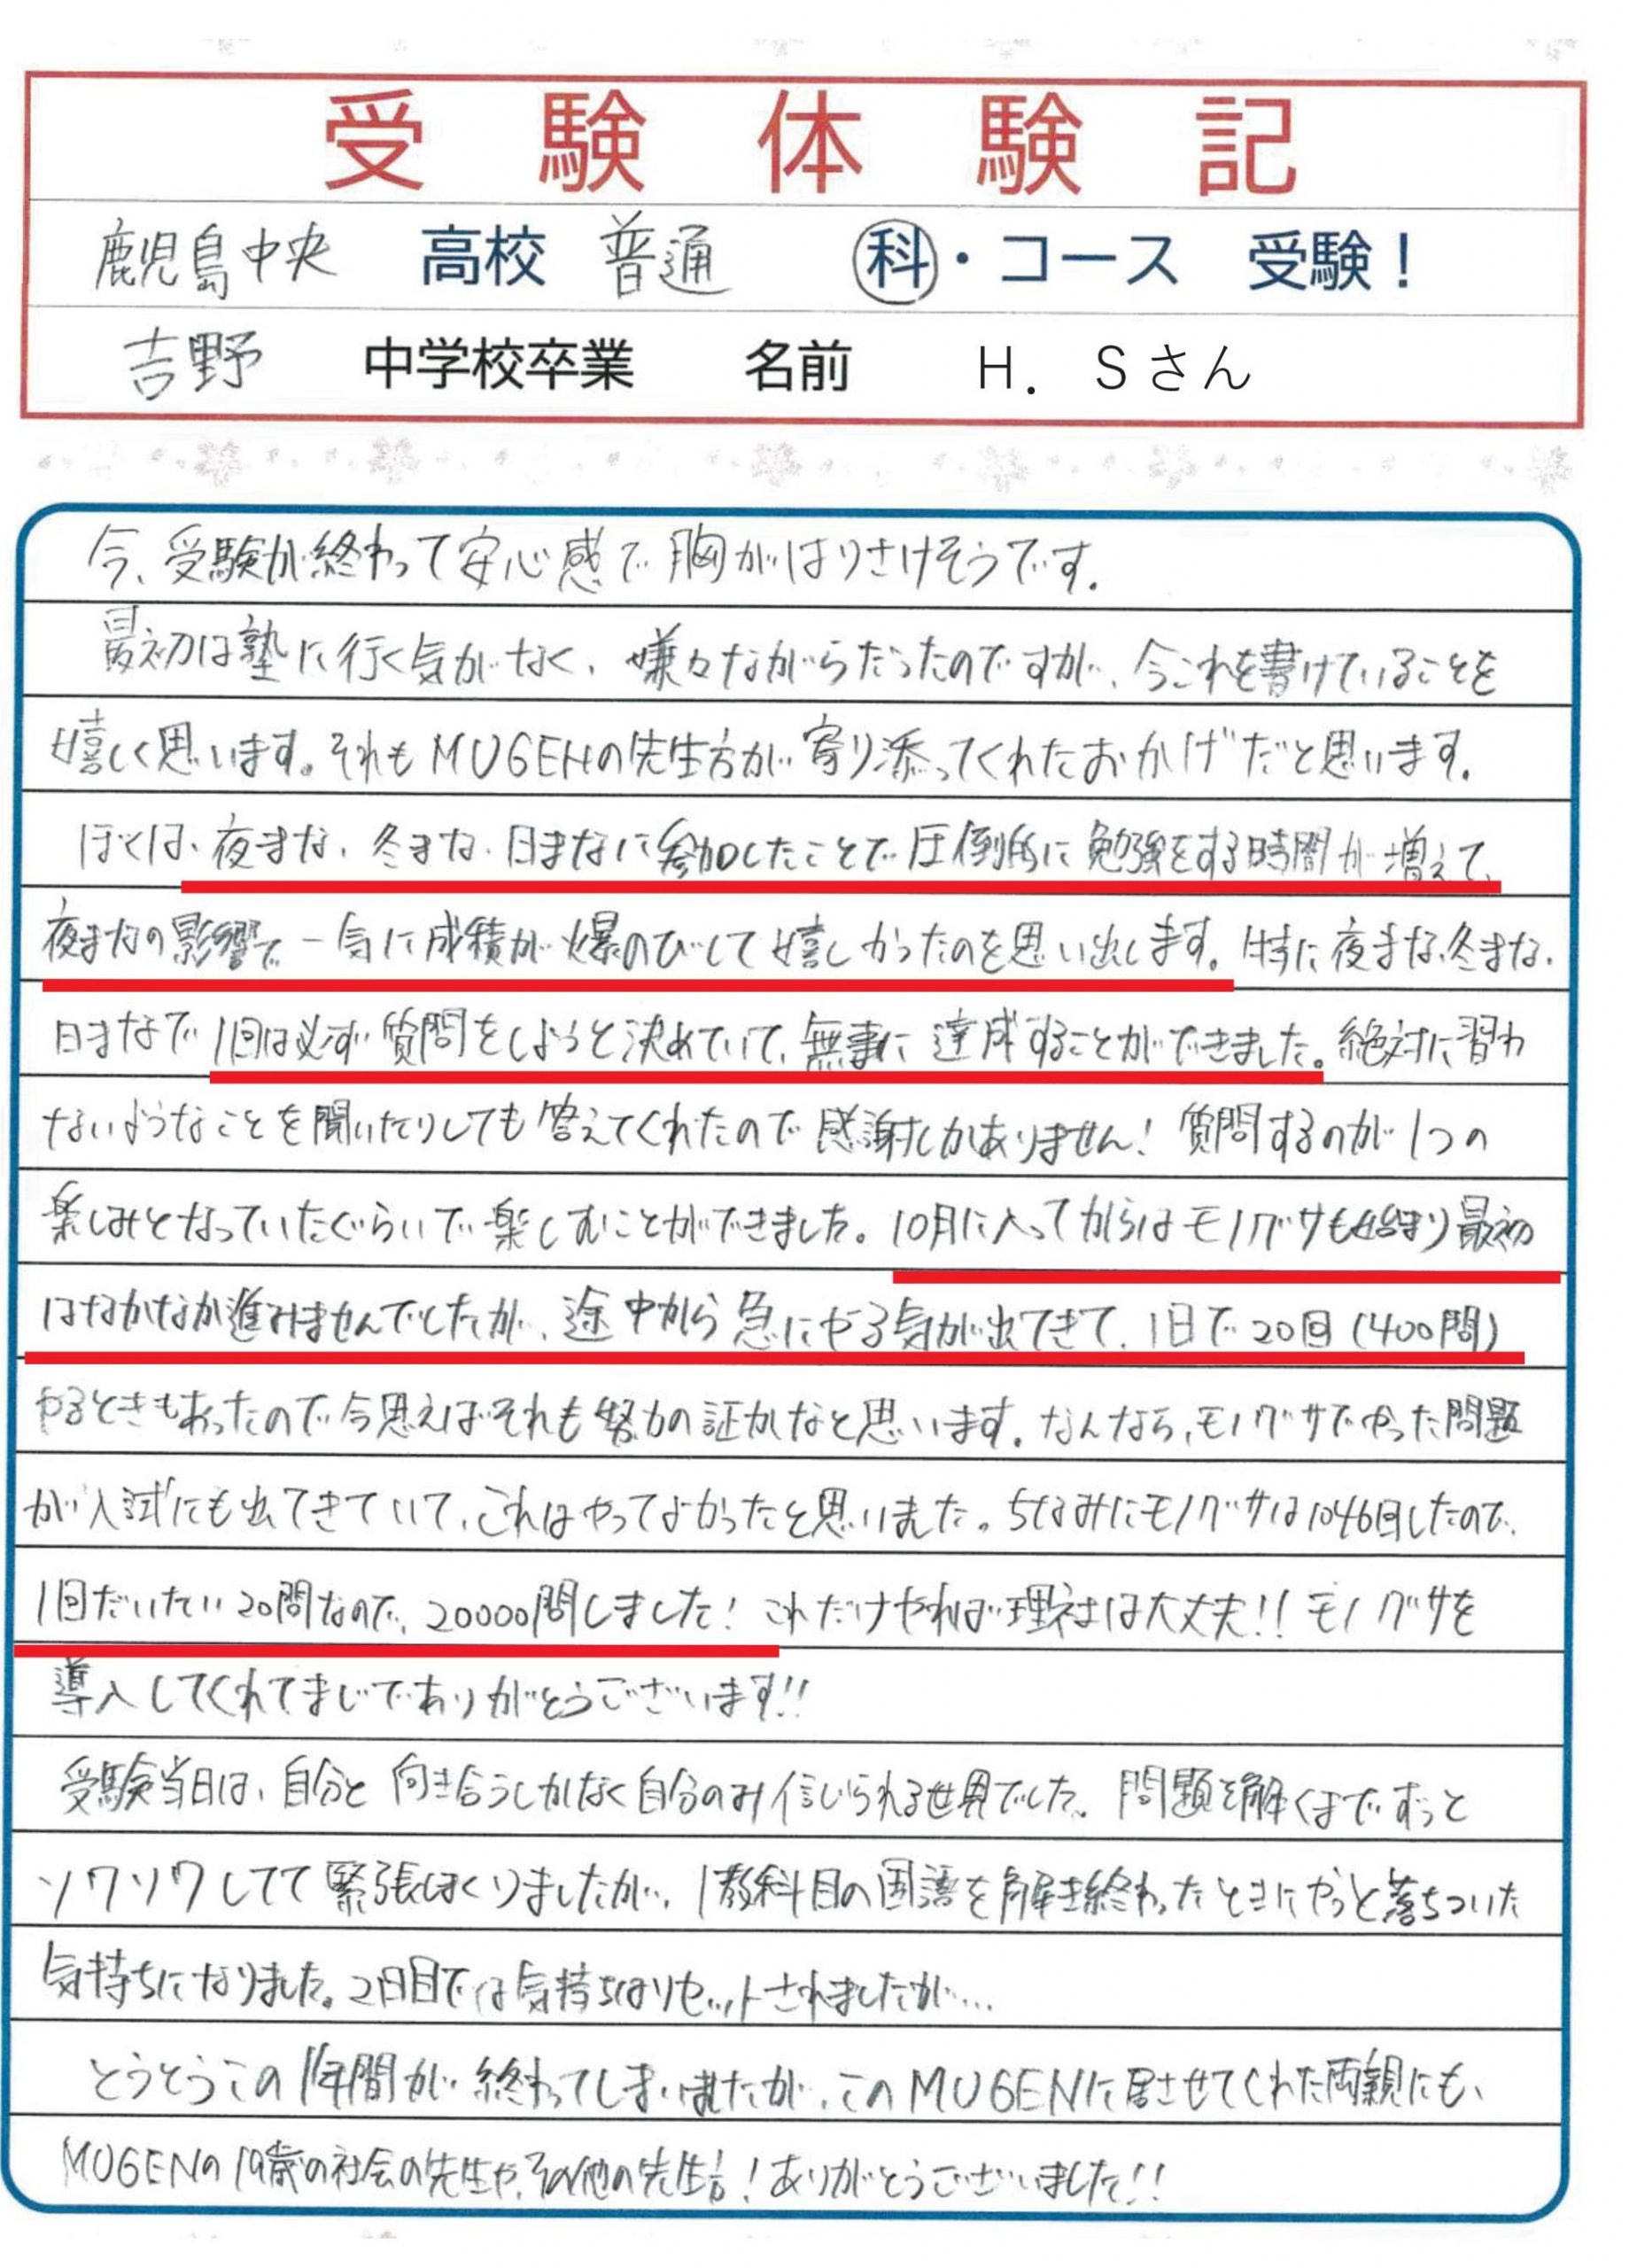 受験体験記
鹿児島中央 高校 普通 科・コース 受験！
吉野 中学校卒業 名前 H. Sさん
今、受験が終わって安心感で胸がはりさけそうです。
最初は塾に行く気がなく、嫌々ながらだったのですが、今これを書けていることを
嬉しく思います。それもMUGENの先生方が寄り添ってくれたおかげだと思います。
ぼくは、夜まな、冬まな、日まなに参加したことで圧倒的に勉強をする時間が増えて、
夜まなの影響で一気に成積が爆のびして嬉しかったのを思い出します。特に夜まな、冬まな、
日まなで1回は必ず質問をしようと決めていて、無事に達成することができました。絶対に習わ
ないようなことを聞いたりしても答えてくれたので感謝しかありません！質問するのが1つの
楽しみとなっていたぐらいで楽しむことができました。10月に入ってからはモノグサも始まり最初
はなかなか進みませんでしたが、途中から急にやる気が出てきて、1日で20回(400問)
やるときもあったので今思えばそれも努力の証かなと思います。なんなら、モノグサでやった問題
が入試にも出てきていて、これはやってよかったと思いました。ちなみにモノグサは1046回したので、
1回だいたい20問なので、20000問しました！これだけやれば理社は大丈夫!!モノグサを
導入してくれてまじでありがとうございます!!
受験当日は、自分と向き合うしかなく自分のみ信じられる世界でした。問題を解くまでずっと
ソワソワしてて緊張しまくりましたが、1教科目の国語を解き終わったときにやっと落ちついた
気持ちになりました。2日目では気持ちはリセットされましたが…
とうとうこの1年間が終わってしまいましたが、このMUGENに居させてくれた両親にも、
MUGENの19歳の社会の先生や、その他の先生方！ありがとうございました!!